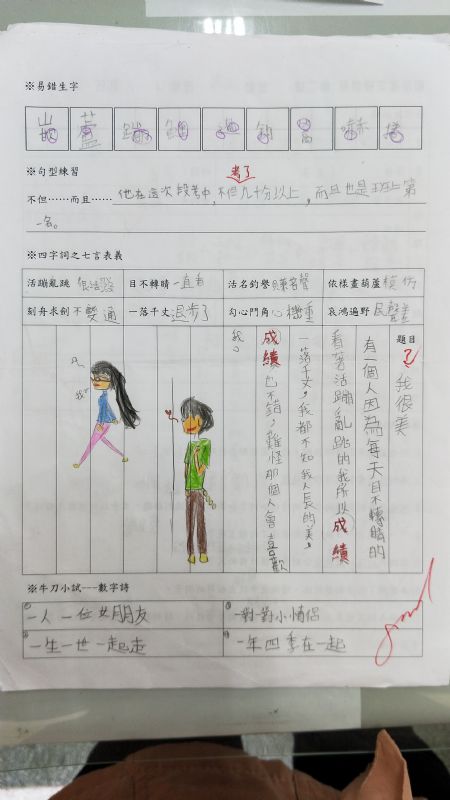 ※易錯生字
※句型練習
考了
不但……而且…… 他在這次段考中,不但九十分以上,而且也是班上第
一名。
※四字詞之七言表義
活蹦亂跳 很活潑 目不轉睛 一直看 沽名釣譽 賺名聲 依樣畫葫蘆 模仿
刻舟求劍 不變通 一落千丈 退步了 勾心鬥角 心機重 哀鴻遍野
題目 我很美
有一個人因為每天目不轉睛的
看著活蹦亂跳的我所以成績
一落千丈,我都不知我人長的美,
成績也不錯,難怪那個人會喜歡
我。
我
※牛刀小試---數字詩
① 一人一位女朋友
② 一對對小情侶
③ 一生一世一起走
④ 一年四季在一起